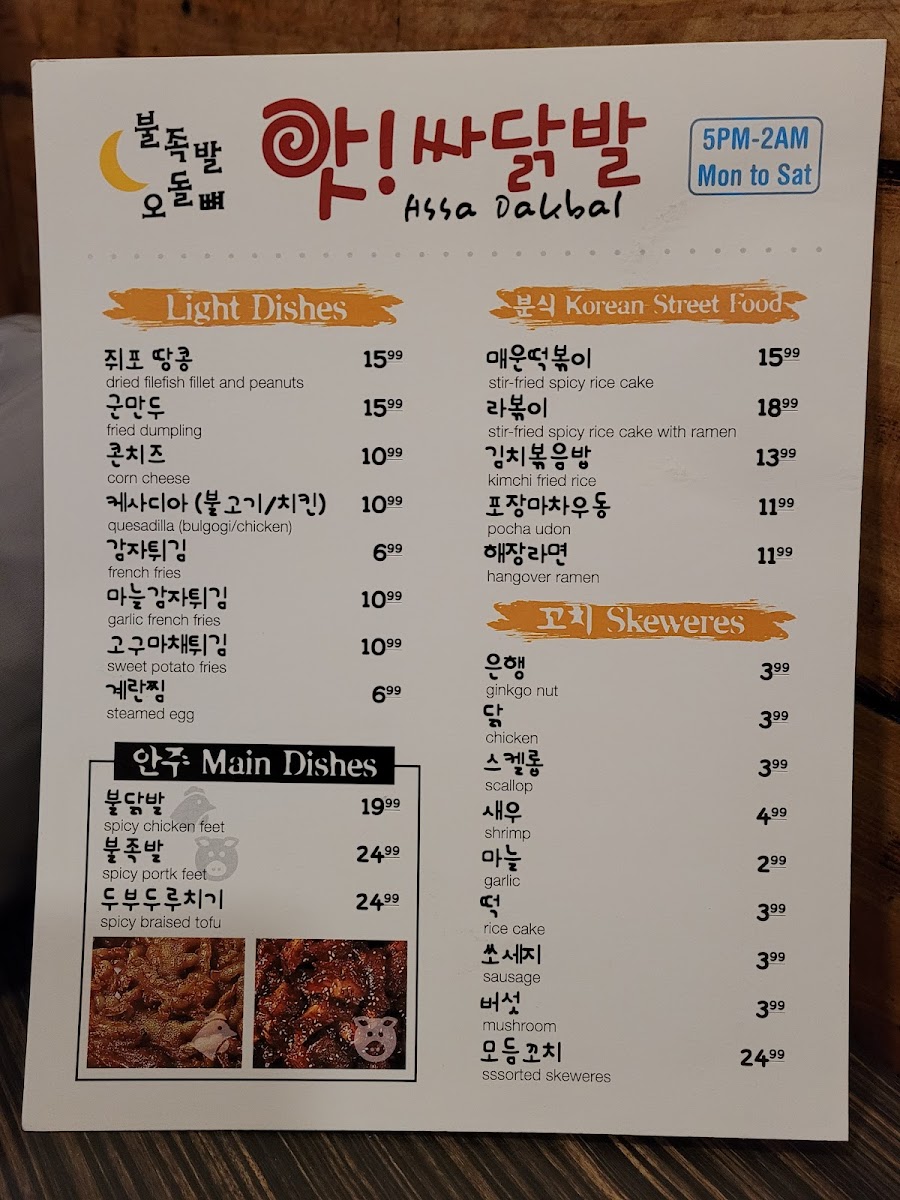 불족발
오돌뼈
앗!싸닭발
Assa Dakbal
5PM-2AM
Mon to Sat
Light Dishes
쥐포 땅콩 15⁹⁹
dried filefish fillet and peanuts
군만두 15⁹⁹
fried dumpling
콘치즈 10⁹⁹
corn cheese
케사디아 (불고기/치킨) 10⁹⁹
quesadilla (bulgogi/chicken)
감자튀김 6⁹⁹
french fries
마늘감자튀김 10⁹⁹
garlic french fries
고구마채튀김 10⁹⁹
sweet potato fries
계란찜 6⁹⁹
steamed egg
안주 Main Dishes
불닭발 19⁹⁹
spicy chicken feet
불족발 24⁹⁹
spicy portk feet
두부두루치기 24⁹⁹
spicy braised tofu
분식 Korean Street Food
매운떡볶이 15⁹⁹
stir-fried spicy rice cake
라볶이 18⁹⁹
stir-fried spicy rice cake with ramen
김치볶음밥 13⁹⁹
kimchi fried rice
포장마차우동 11⁹⁹
pocha udon
해장라면 11⁹⁹
hangover ramen
꼬치 Skeweres
은행 3⁹⁹
ginkgo nut
닭 3⁹⁹
chicken
스켈롭 3⁹⁹
scallop
새우 4⁹⁹
shrimp
마늘 2⁹⁹
garlic
떡 3⁹⁹
rice cake
쏘세지 3⁹⁹
sausage
버섯 3⁹⁹
mushroom
모듬꼬치 24⁹⁹
sssorted skeweres